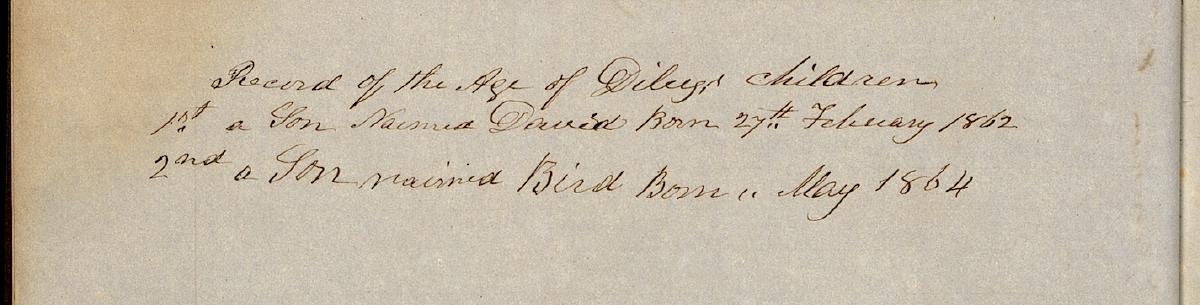 Record of the Age of Dilcys children
1st a Son Naimed David Born 27th February 1862
2nd a Son naimed Bird Born " May 1864